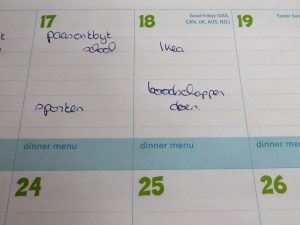 17
18
Good Friday (USA,
CAN, UK, AUS, NZL)
19
paasontbijt
school
Ikea
sporten
boodschappen
doen
dinner menu
dinner menu
dinner menu
24
25
26